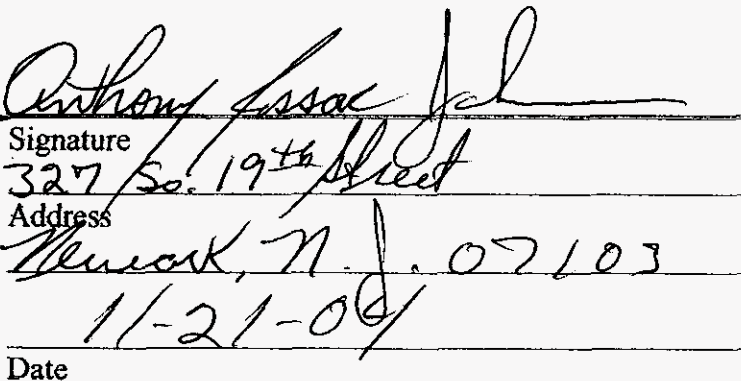 Anthony Issac
Signature
327 So. 19th Street
Address
Newark, N.J. 07103
11-21-04
Date